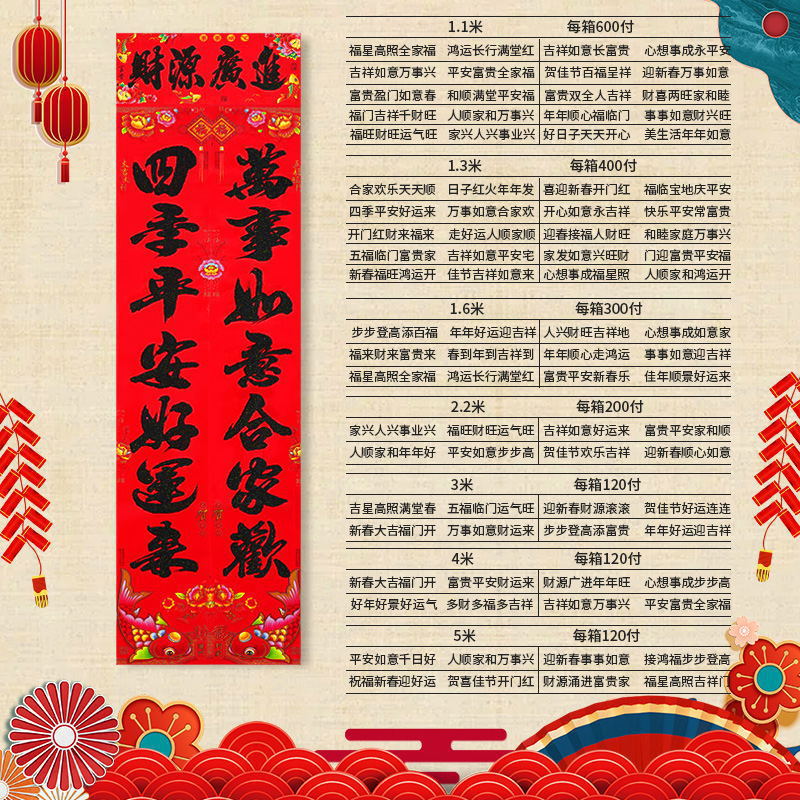 財源廣進
萬事如意合家歡
四季平安好運来
1.1米 每箱600付
福星高照全家福 鸿运长行满堂红 吉祥如意长富贵 心想事成永平安
吉祥如意万事兴 平安富贵全家福 贺佳节百福呈祥 迎新春万事如意
富贵盈门如意春 和顺满堂平安福 富贵双全人吉祥 财喜两旺家和睦
福门吉祥千财旺 人顺家和万事兴 年年顺心福临门 事事如意财兴旺
福旺财旺运气旺 家兴人兴事业兴 好日子天天开心 美生活年年如意
1.3米 每箱400付
合家欢乐天天顺 日子红火年年发 喜迎新春开门红 福临宝地庆平安
四季平安好运来 万事如意合家欢 开心如意永吉祥 快乐平安常富贵
开门红财来福来 走好运人顺家顺 迎春接福人财旺 和睦家庭万事兴
五福临门富贵家 吉祥如意平安宅 家发如意兴旺财 门迎富贵平安福
新春福旺鸿运开 佳节吉祥如意来 心想事成福星照 人顺家和鸿运开
1.6米 每箱300付
步步登高添百福 年年好运迎吉祥 人兴财旺吉祥地 心想事成如意家
福来财来富贵来 春到年到吉祥到 年年顺心走鸿运 事事如意迎吉祥
福星高照全家福 鸿运长行满堂红 富贵平安新春乐 佳年顺景好运来
2.2米 每箱200付
家兴人兴事业兴 福旺财旺运气旺 吉祥如意好运来 富贵平安家和顺
人顺家和年年好 平安如意步步高 贺佳节欢乐吉祥 迎新春顺心如意
3米 每箱120付
吉星高照满堂春 五福临门运气旺 迎新春财源滚滚 贺佳节好运连连
新春大吉福门开 万事如意财运来 步步登高添富贵 年年好运迎吉祥
4米 每箱120付
新春大吉福门开 富贵平安财运来 财源广进年年旺 心想事成步步高
好年好景好运气 多财多福多吉祥 吉祥如意万事兴 平安富贵全家福
5米 每箱120付
平安如意千日好 人顺家和万事兴 迎新春事事如意 接鸿福步步登高
祝福新春迎好运 贺喜佳节开门红 财源涌进富贵家 福星高照吉祥门